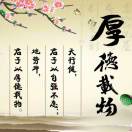 厚德載物
天行健，
君子以自强不息；
地势坤，
君子以厚德载物。